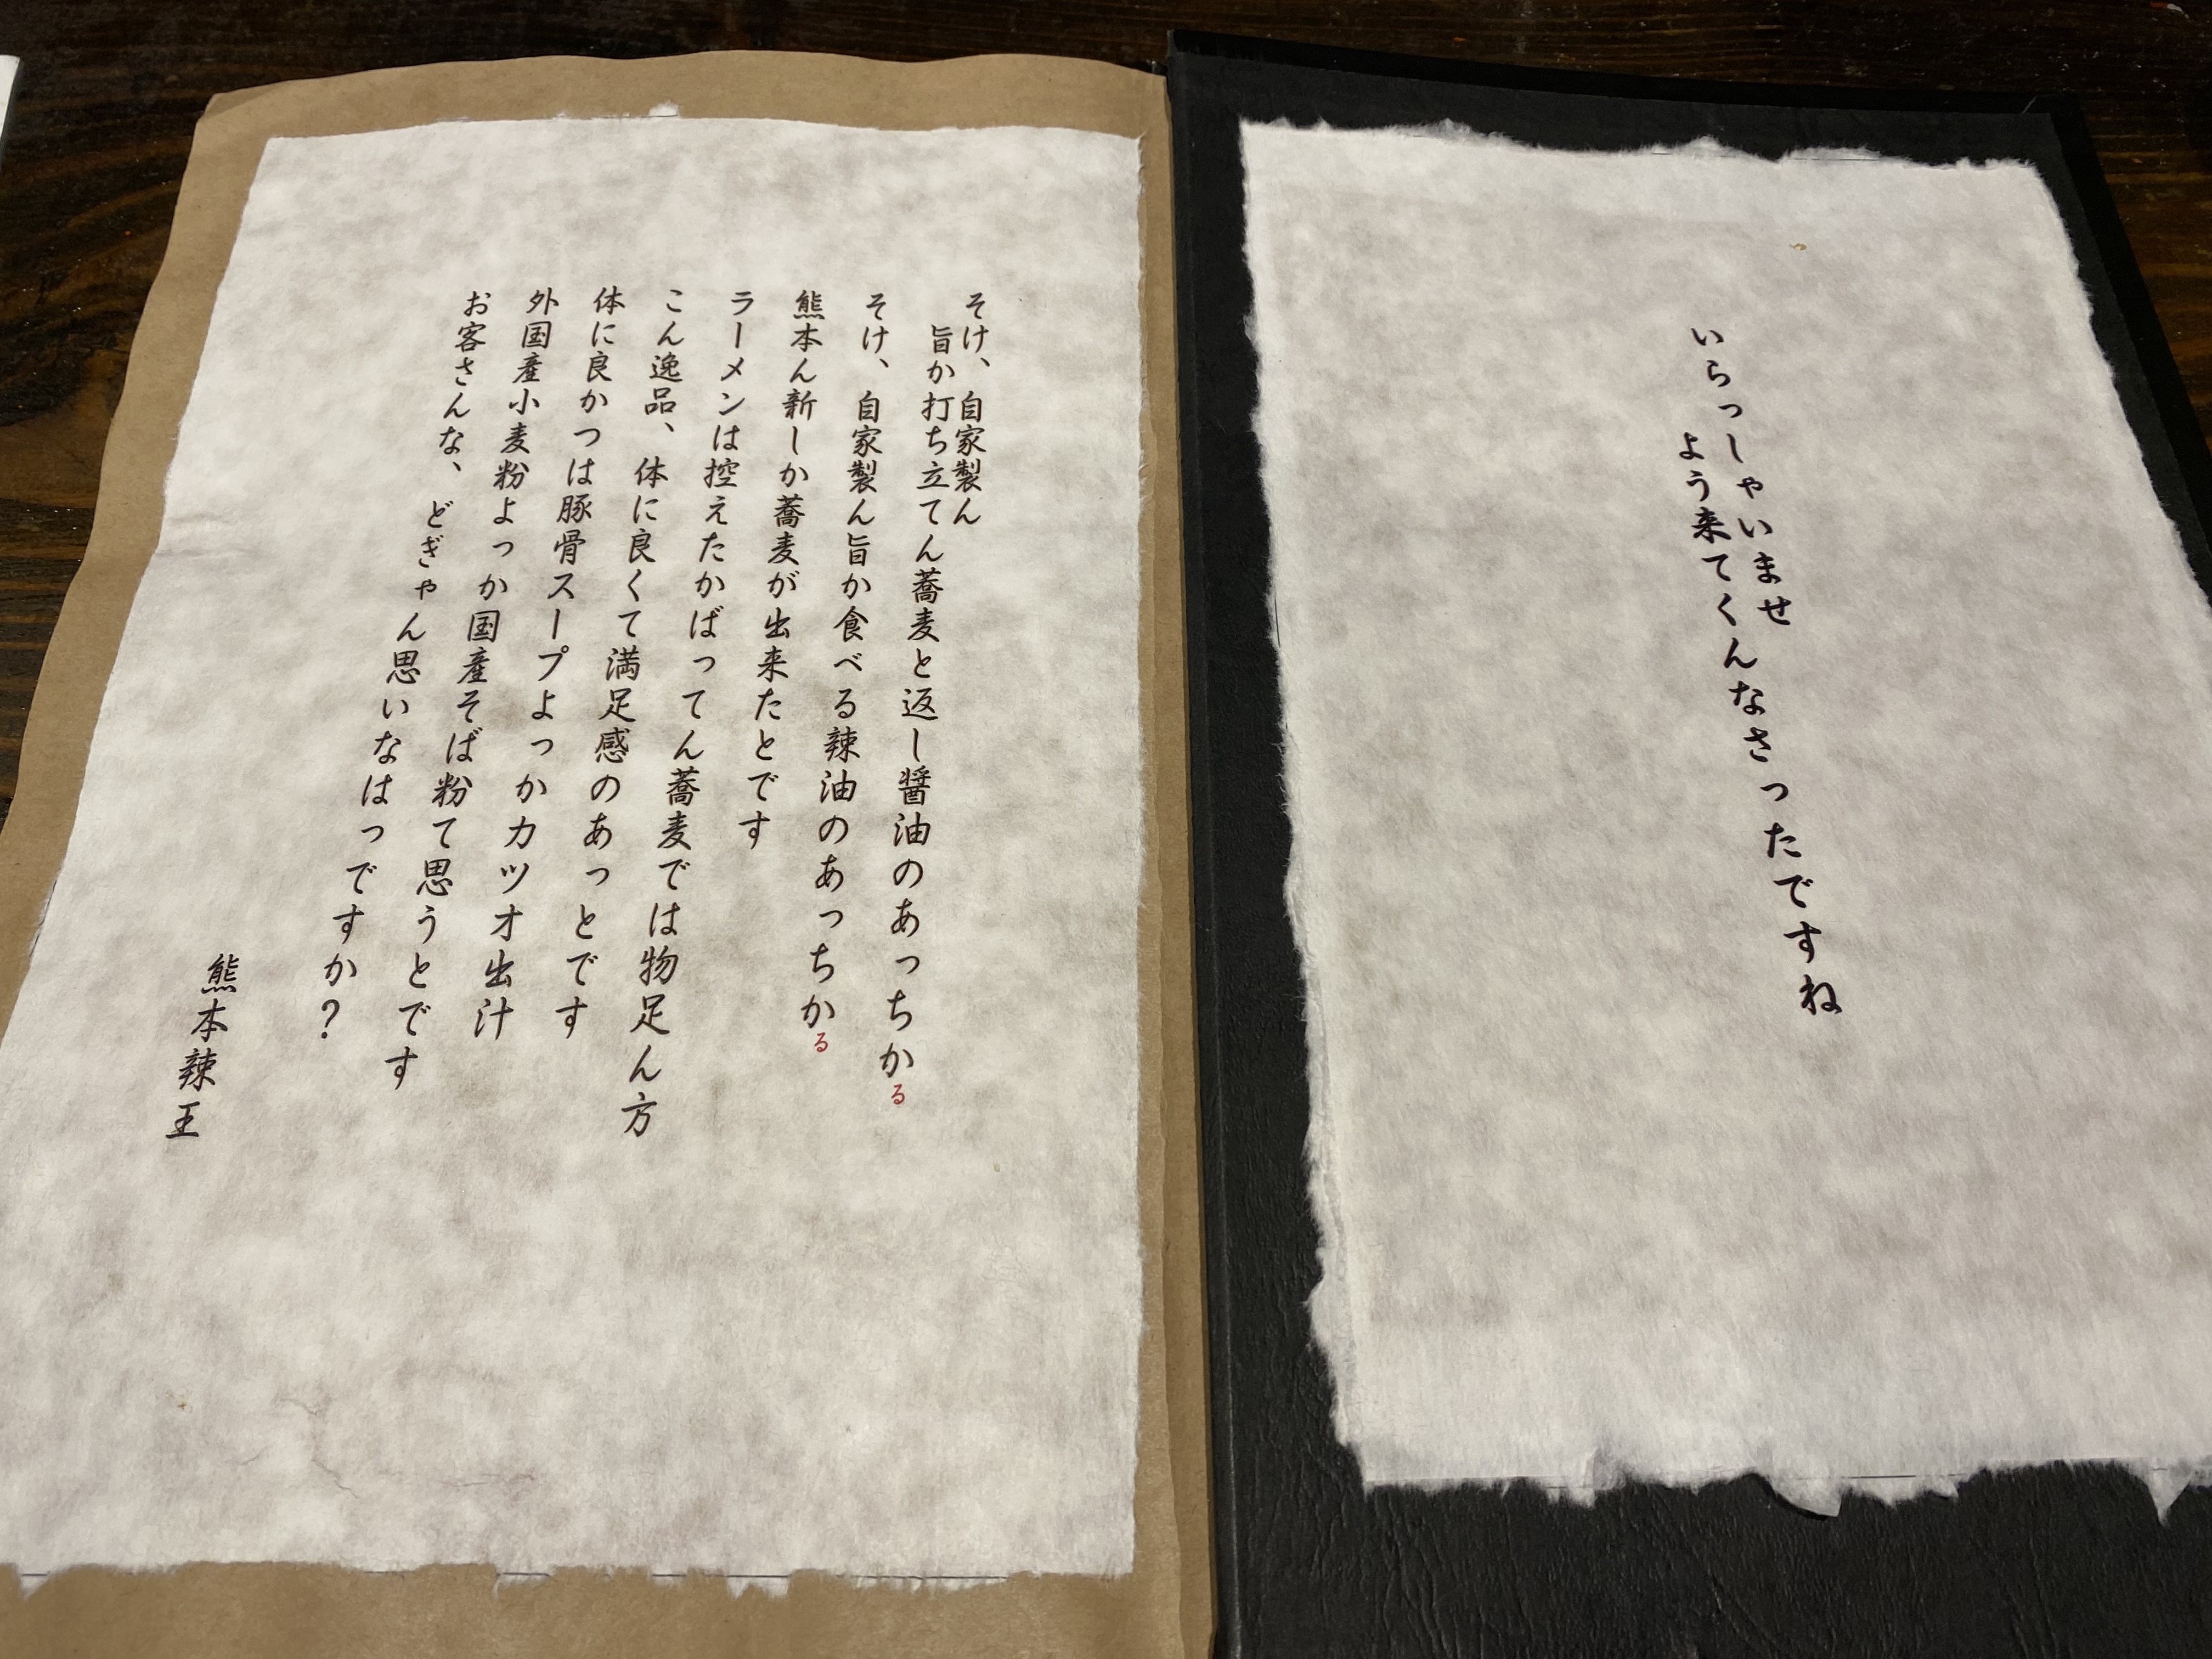 いらっしゃいませ
よう来てくんなさったですね
そけ、自家製ん
旨か打ち立てん蕎麦と返し醤油のあっちかる
そけ、自家製ん旨か食べる辣油のあっちかる
熊本ん新しか蕎麦が出来たとです
ラーメンは控えたかばってん蕎麦では物足ん方
こん逸品、体に良くて満足感のあっとです
体に良かつは豚骨スープよっかカツオ出汁
外国産小麦粉よっか国産そば粉て思うとです
お客さんな、どぎゃん思いなはっですか?
熊本辣王